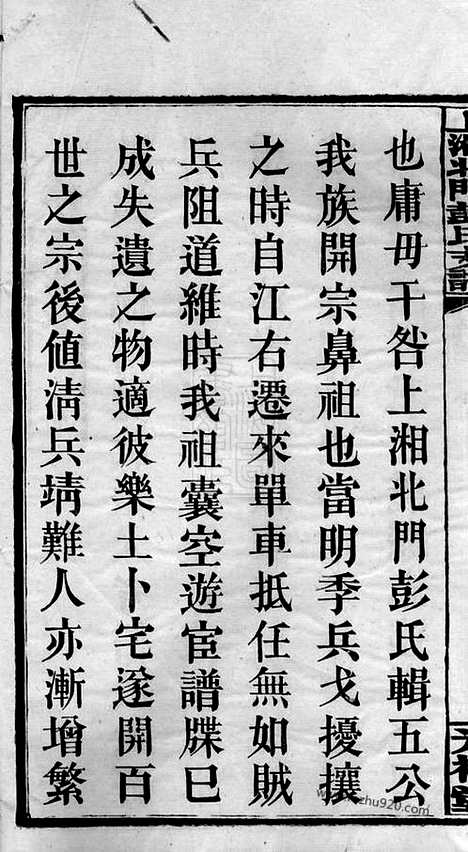 也庸毋干咎上湘北門彭氏輯五公
我族開宗鼻祖也當明季兵戈擾攘
之時自江右遷來單車抵任無如賊
兵阻道維時我祖囊空遊宦譜牒已
成失遺之物適彼樂土卜宅遂開百
世之宗後值清兵靖難人亦漸增繁